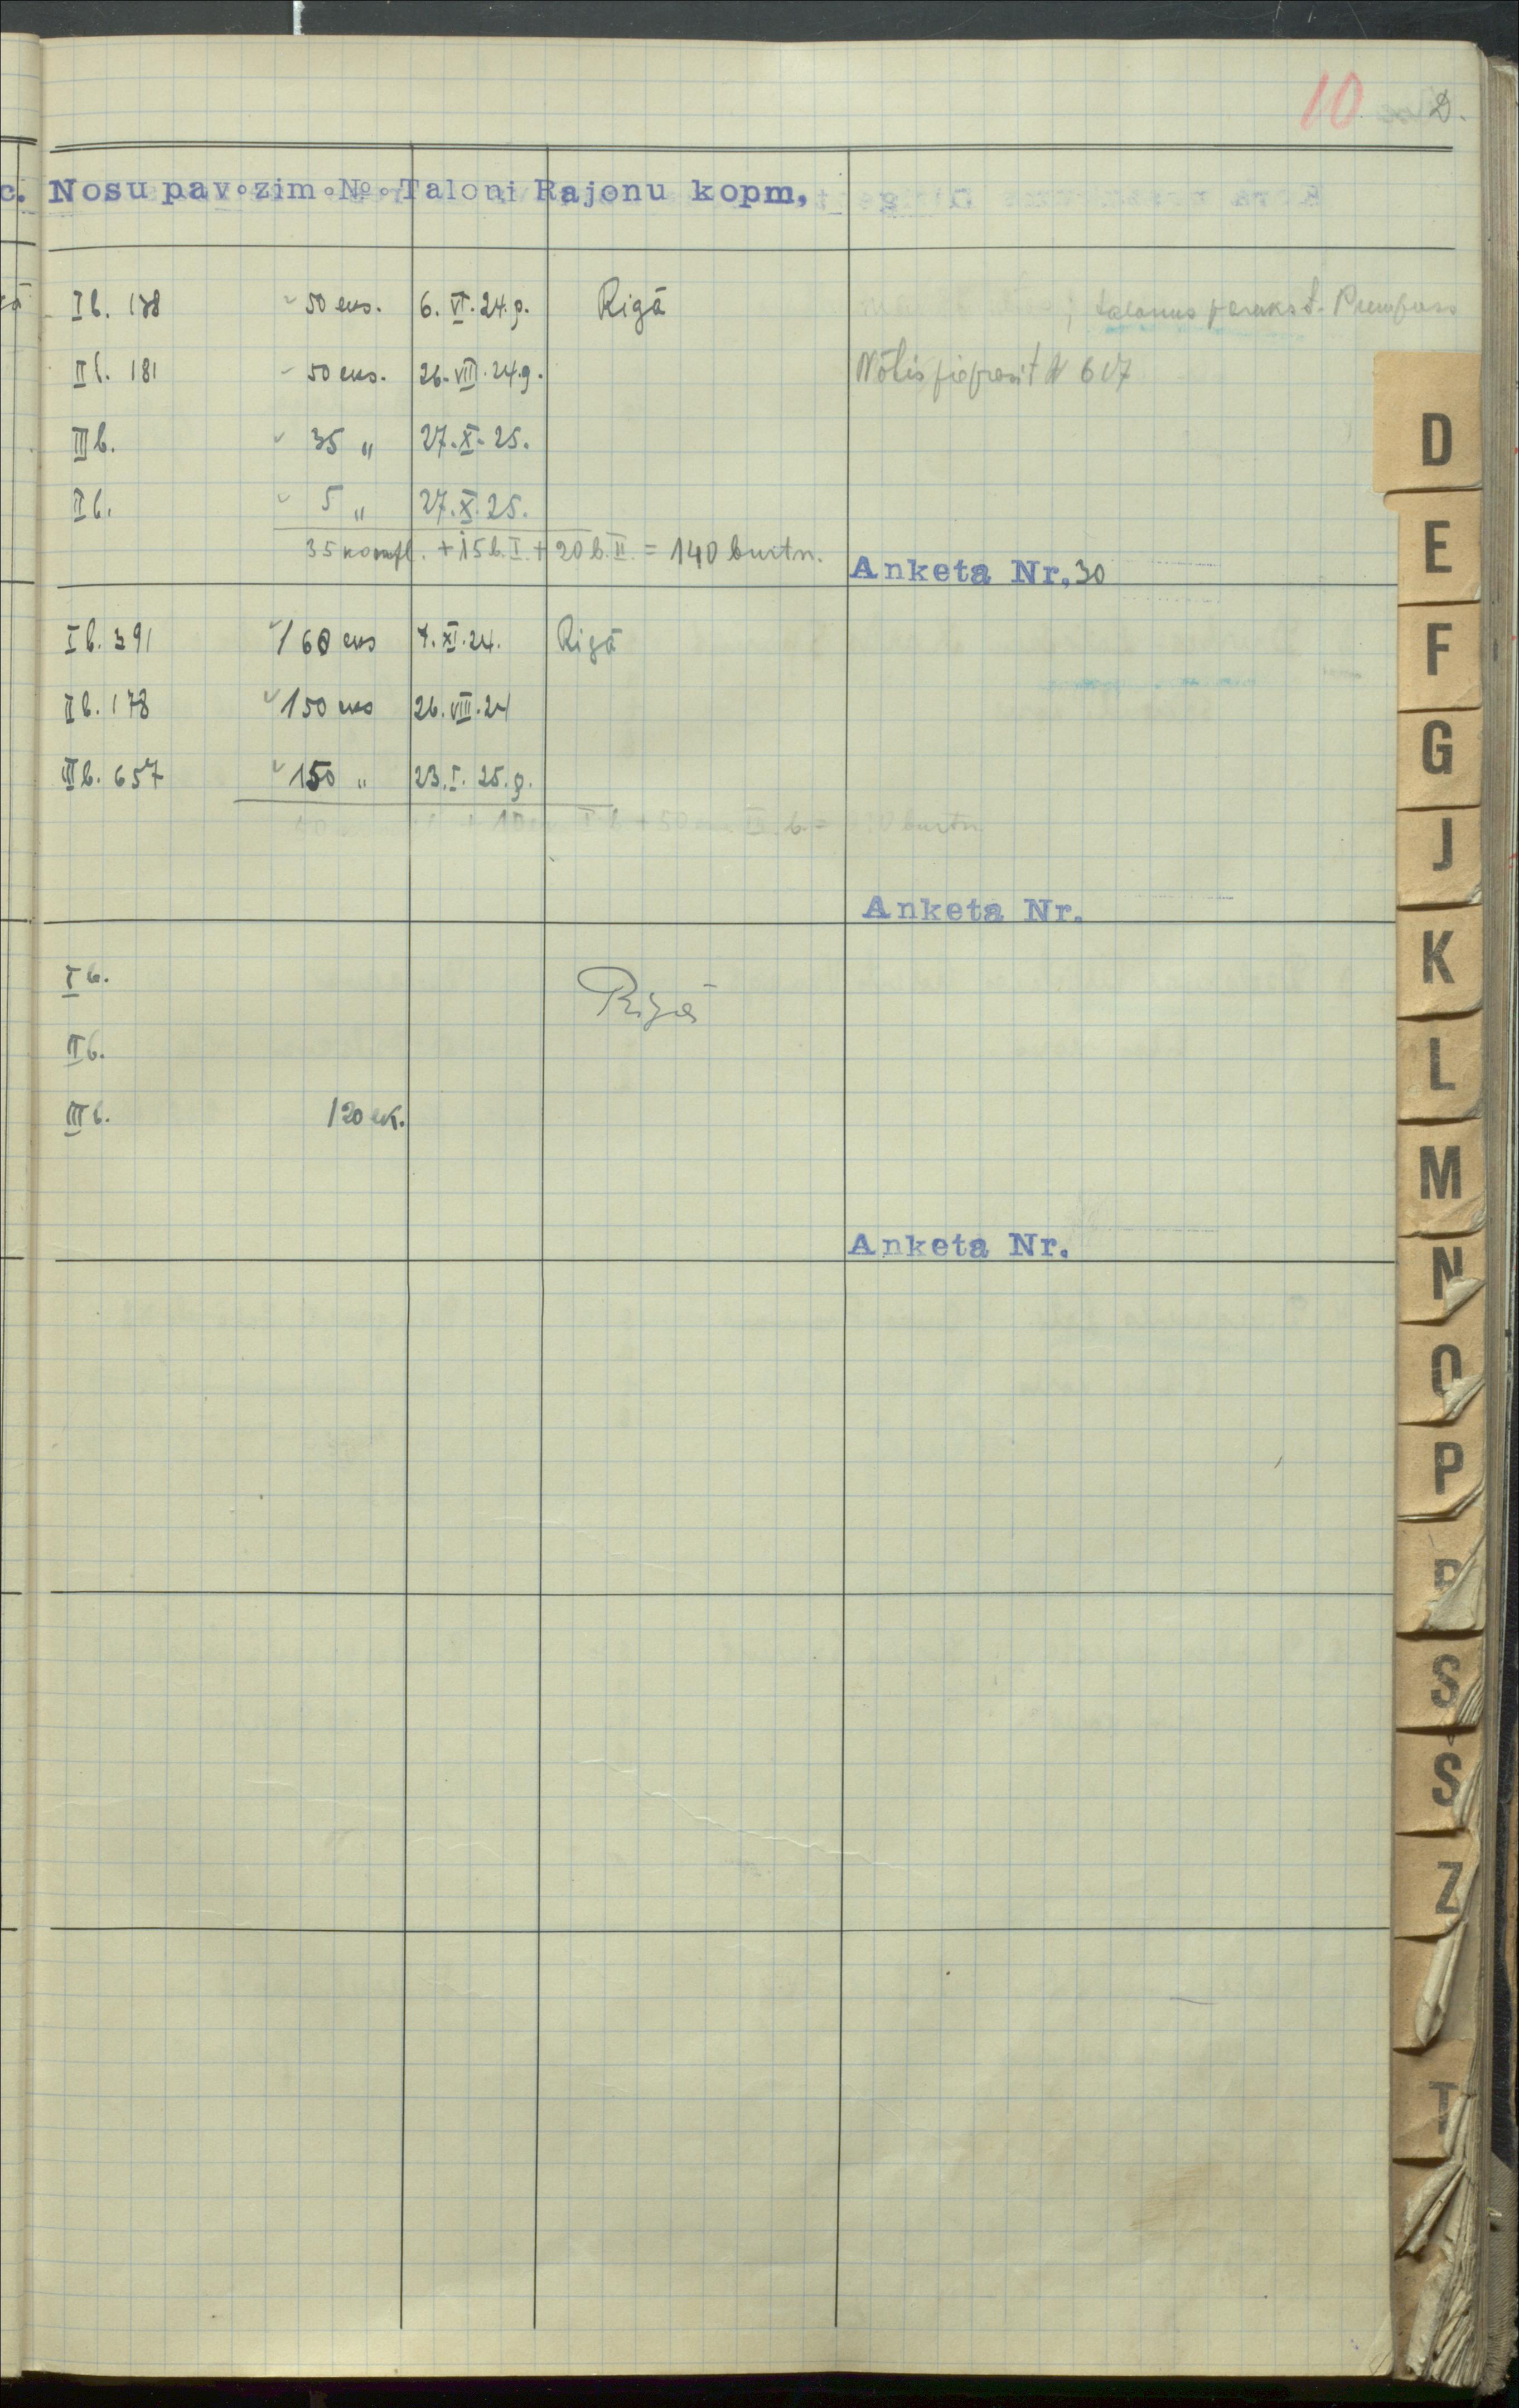 10 D.
c. Nosu pav. zim. № Taloni Rajonu kopm,
I b. 178 50 eks. 6. VI. 24. g. Rigā ; talonus parakst.
II b. 181 50 eks. 26. VIII. 24. g. Nōtis pieprasīt N 617
III b. 35 " 27. X. 25.
II b. 5 " 27. X. 25.
35 kompl. + 15 b. I. + 20 b. II. = 140 burtn.
Anketa Nr. 30
I b. 391 160 eks 7. XI. 24. Rigā
II b. 178 150 eks 26. VIII. 24
III b. 657 150 " 23. I. 25. g.
Anketa Nr.
I b. Rigā
II b.
III b. 120 ek.
Anketa Nr.
D
E
F
G
J
K
L
M
N
O
P
R
S
Š
Z
T